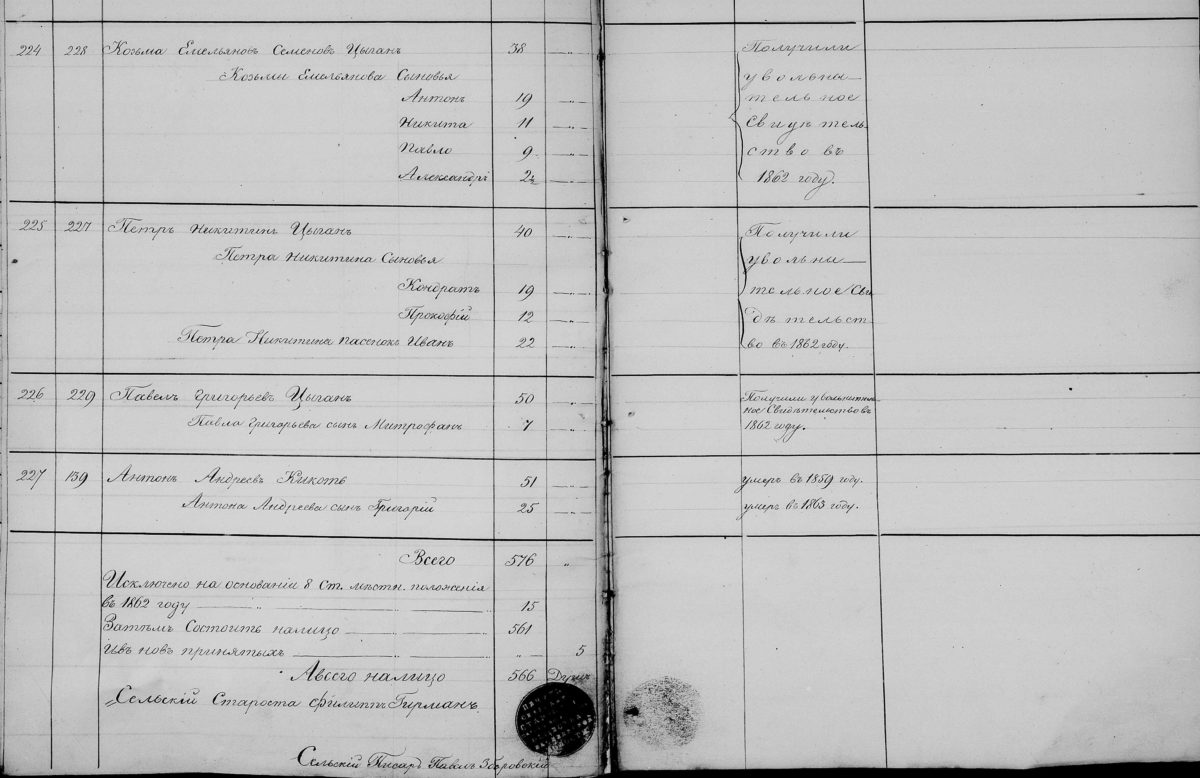 224 228 Козьма Емельяновъ Семеновъ Цыганъ 38 Получили
Козьми Емельянова Сыновья увольна—
Антонъ 19 тельное
Никита 11 Свидѣтель-
Павло 9 ство въ
Александръ 2 1862 году.
225 227 Петръ Никитинъ Цыганъ 40 Получили
Петра Никитина Сыновья увольни—
Кондратъ 19 тельное Сви
Прокофій 12 дѣтельст
Петра Никитина пасенокъ Иванъ 22 во въ 1862 году.
226 229 Павелъ Григорьевъ Цыганъ 50 Получили увольнитель
ное Свидѣтельство въ
Павла Григорьева сынъ Митрофанъ 7 1862 году.
227 139 Антонъ Андреевъ Кикоть 51 умеръ въ 1859 году.
Антона Андреева сынъ Григорій 25 умеръ въ 1863 году.
Всего 576 „
Исключено на основаніи 8 Ст. мѣстн. положенія
въ 1862 году — „ — 15
Затѣмъ Состоитъ налицо — 561
новъ принятыхъ — „ — 5
Авсего налицо 566 Душъ
Сельскій Староста Филиппъ Германъ
Сельскій Писарь Павелъ Зборовскій